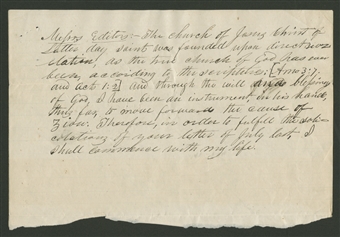 Messrs Editors:— The church of Jesus Christ of
Latter day saints was founded upon direct reve
elation, as the true church of God has ever
been, according to the scriptures: [Amos 3:7.
and acts 1:2] And through the will and blessings
of God, I have been an instrument in his hands,
thus far, to move forward the cause of
Zion: Therefore, in order to fulfill the soli-
citations of your letter of July last, I
shall commence with my life.